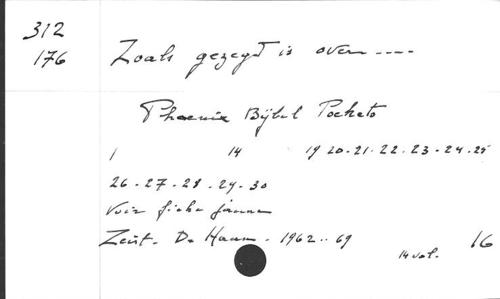 312
176
Zoals gezegd is over ----
Phoenix Bijbel Pockets
1 14 19 20-21-22-23-24-25
26-27-28-29-30
Voir fiche jaune
Zeist. De Haan. 1962..69
14 vol. 16